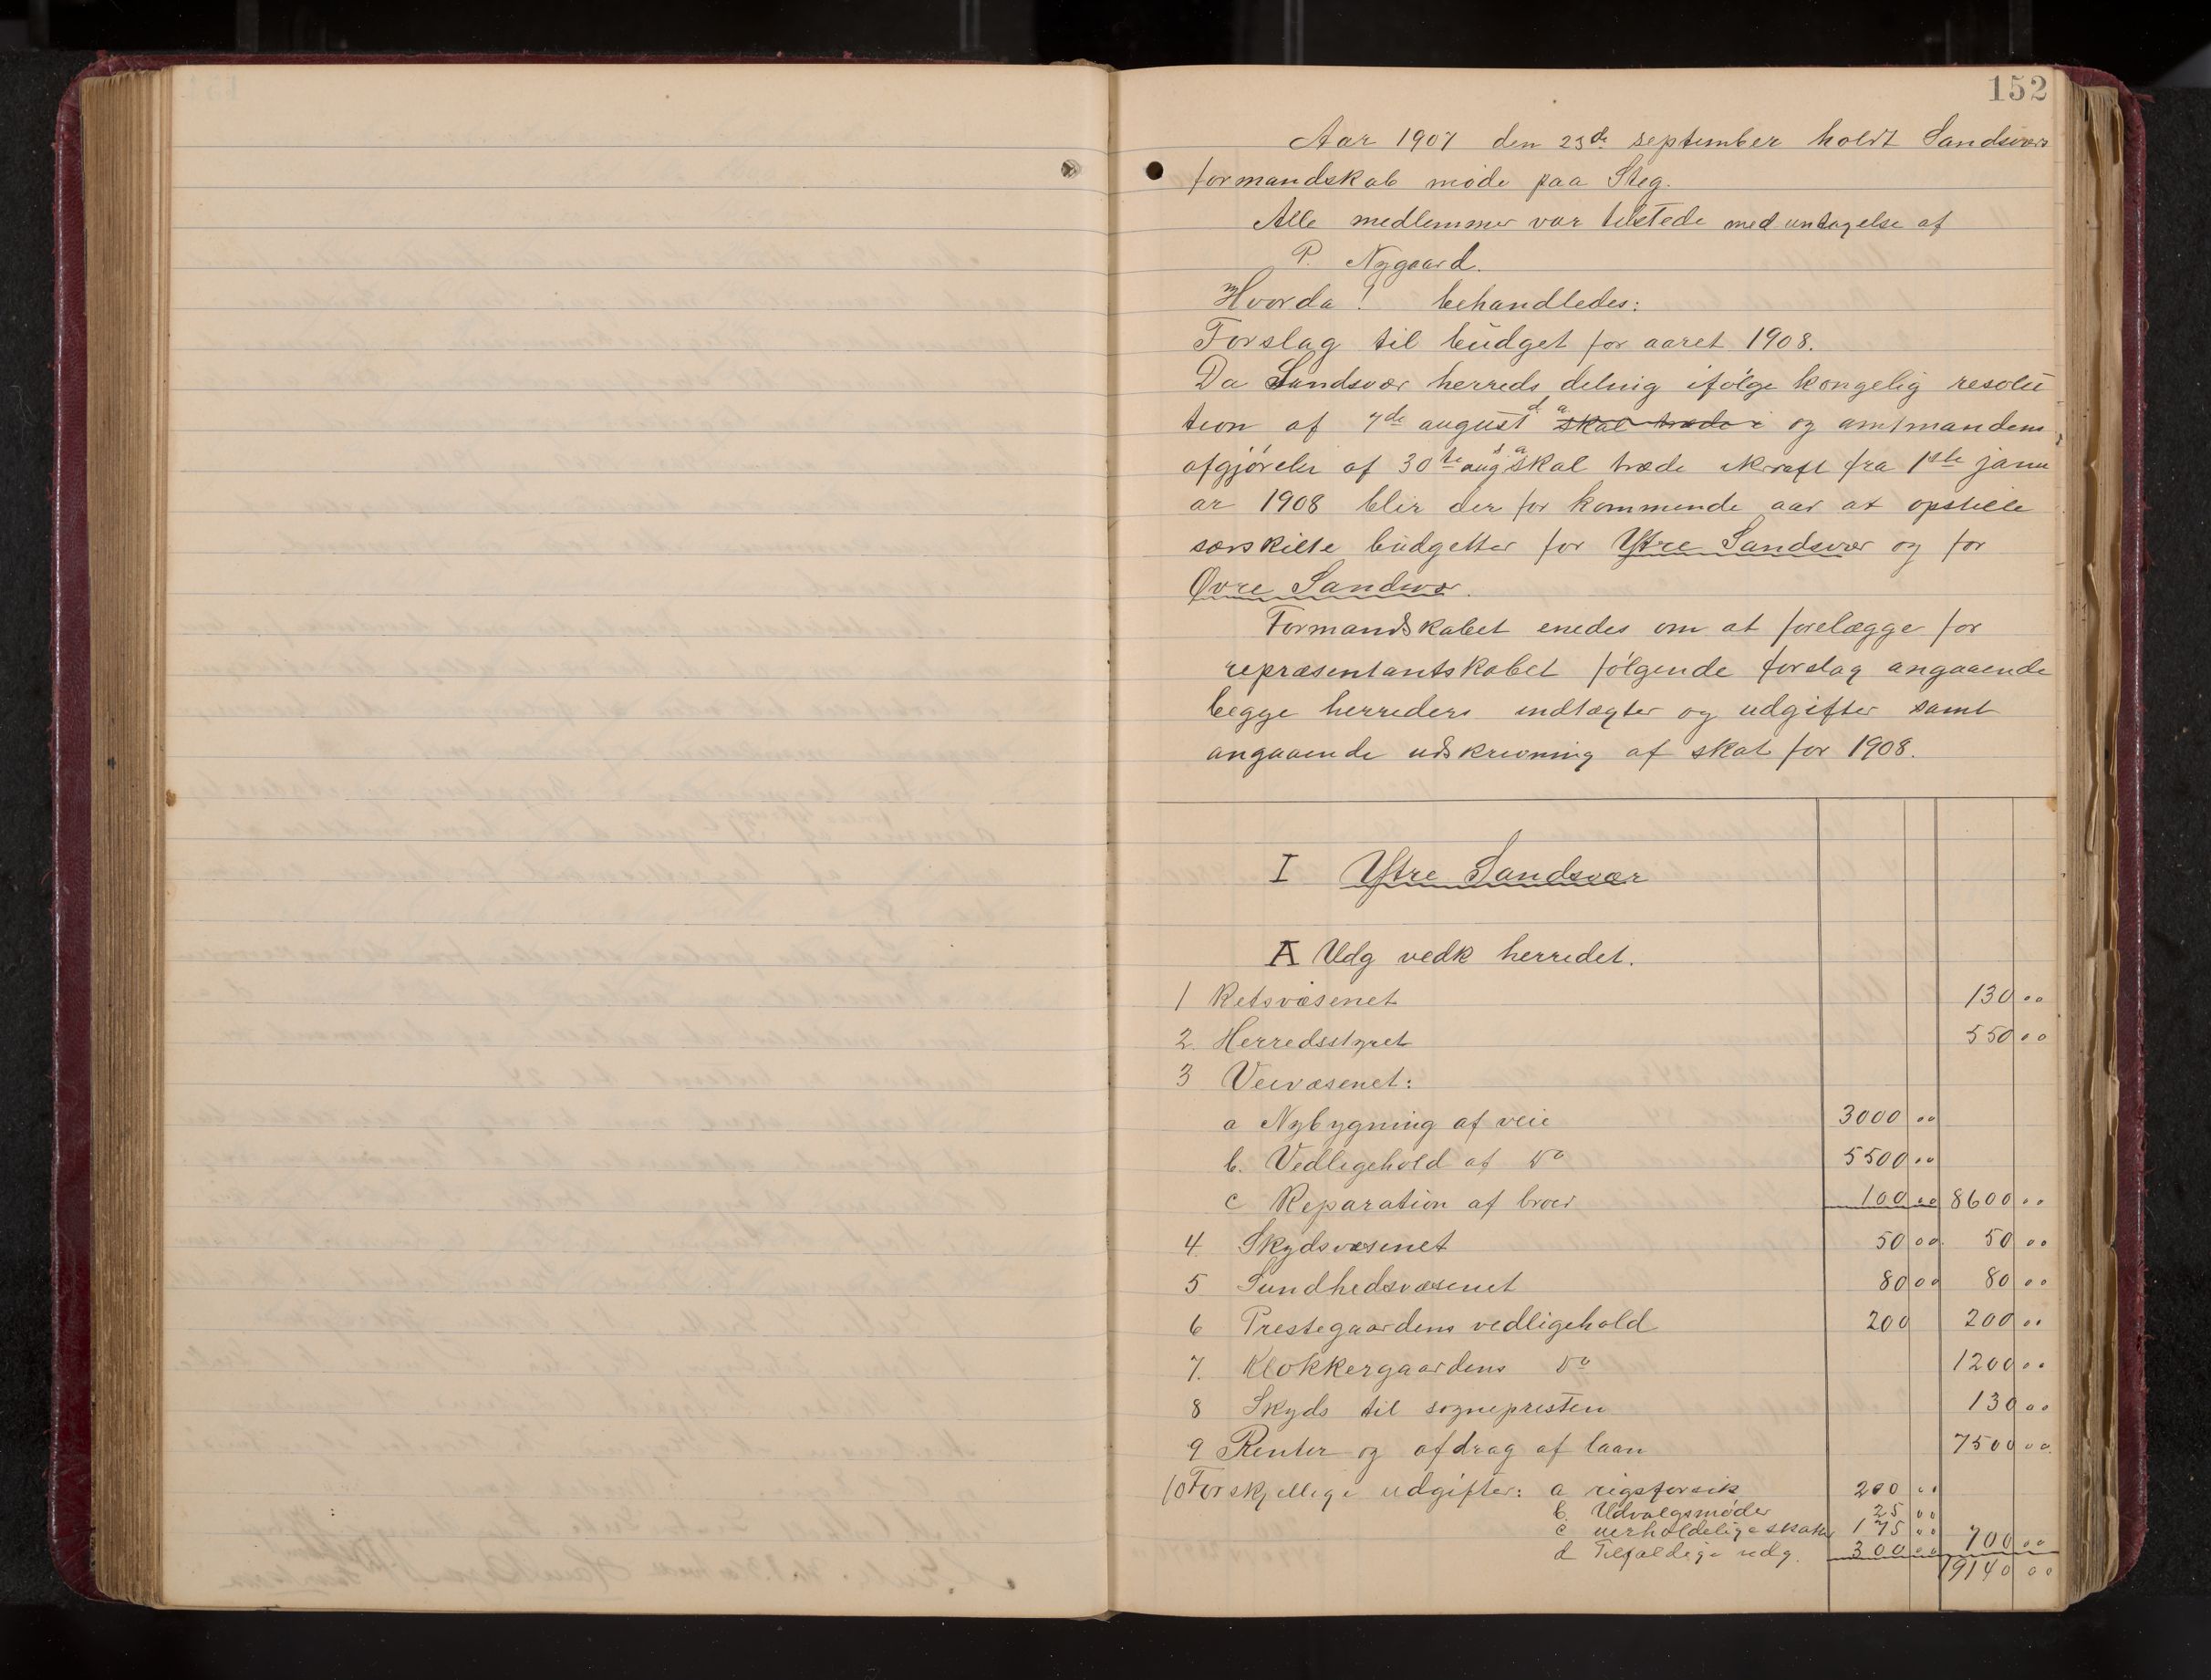 152
Aar 1907 den 23de september holdt Sandsvær
formandskab møde paa Steg.
Alle medlemmer var tilstede med untagelse af
P. Nygaard.
Hvorda! behandledes:
Forslag til budget for aaret 1908.
Da Sandsvær herreds deling ifølge kongelig resolu
tion af 7de august d. a. skal træde i og amtmandens
afgjørelse af 30te aug d. a. skal træde ikraft fra 1ste janu
ar 1908 blir der for kommende aar at opstille
særskilte budgetter for Ytre Sandsvær og for
Øvre Sandsvær.
Formandskabet enedes om at forelægge for
repræsentantskabet følgende forslag angaaende
begge herreders indtægter og udgifter samt
angaaende udskrivning af skat for 1908.
I Ytre Sandsvær
A Udg vedk herredet.
1 Retsvæsenet 130 00
2. Herredsstyret 550 00
3 Veivæsenet:
a Nybygning af veie 3000 00
b. Vedligehold af Do 5500 00
c Reparation af broer 100 00 8600 00
4. Skydsvæsenet 50 00 50 00
5 Sundhedsvæsenet 80 00 80 00
6 Prestegaardens vedligehold 200 200 00
7. Klokkergaardens Do 1200 00
8 Skyds til sognepresten 130 00
9 Renter og afdrag af laan 7500 00
10 Forskjellige udgifter: a rigsforsik 200 00
b. Udvalgsmøder 25 00
c uerholdelige skatter 175 00
d Tilfældige udg. 300 00 700 00
19140 00